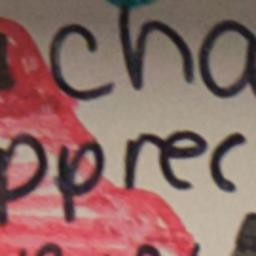 cha
pprec